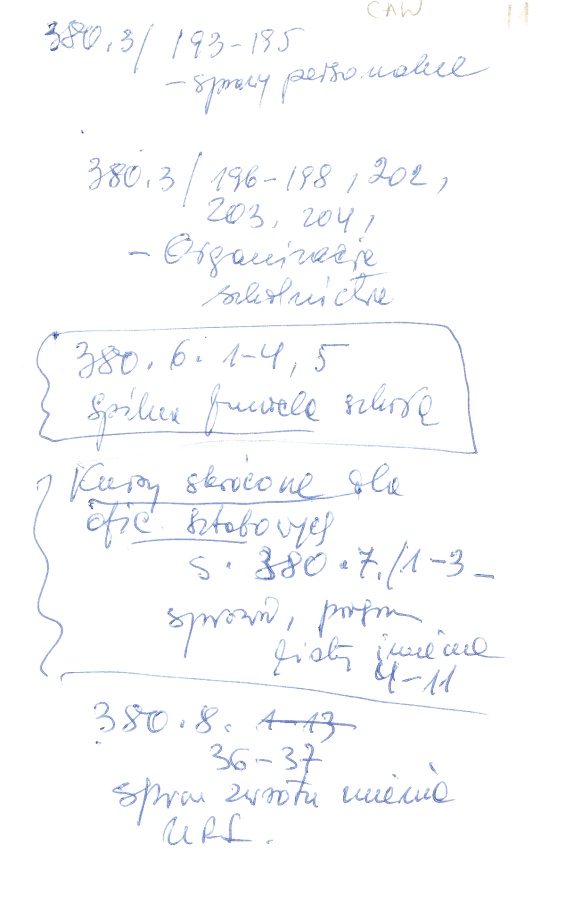 CAW 11
380.3/ 193-195
- sprawy personalne
380.3/ 196-198, 202,
203, 204,
- Organizacja
szkolnictwa
380. 6. 1-4, 5
Spółka szkołą
Kursy skrócone dla
ofic. sztabowych
S. 380.7./1-3-
sprawozd, program
listy imienne
4-11
380.8. 1-13
36-37
spraw zwrotu mienia
URL.